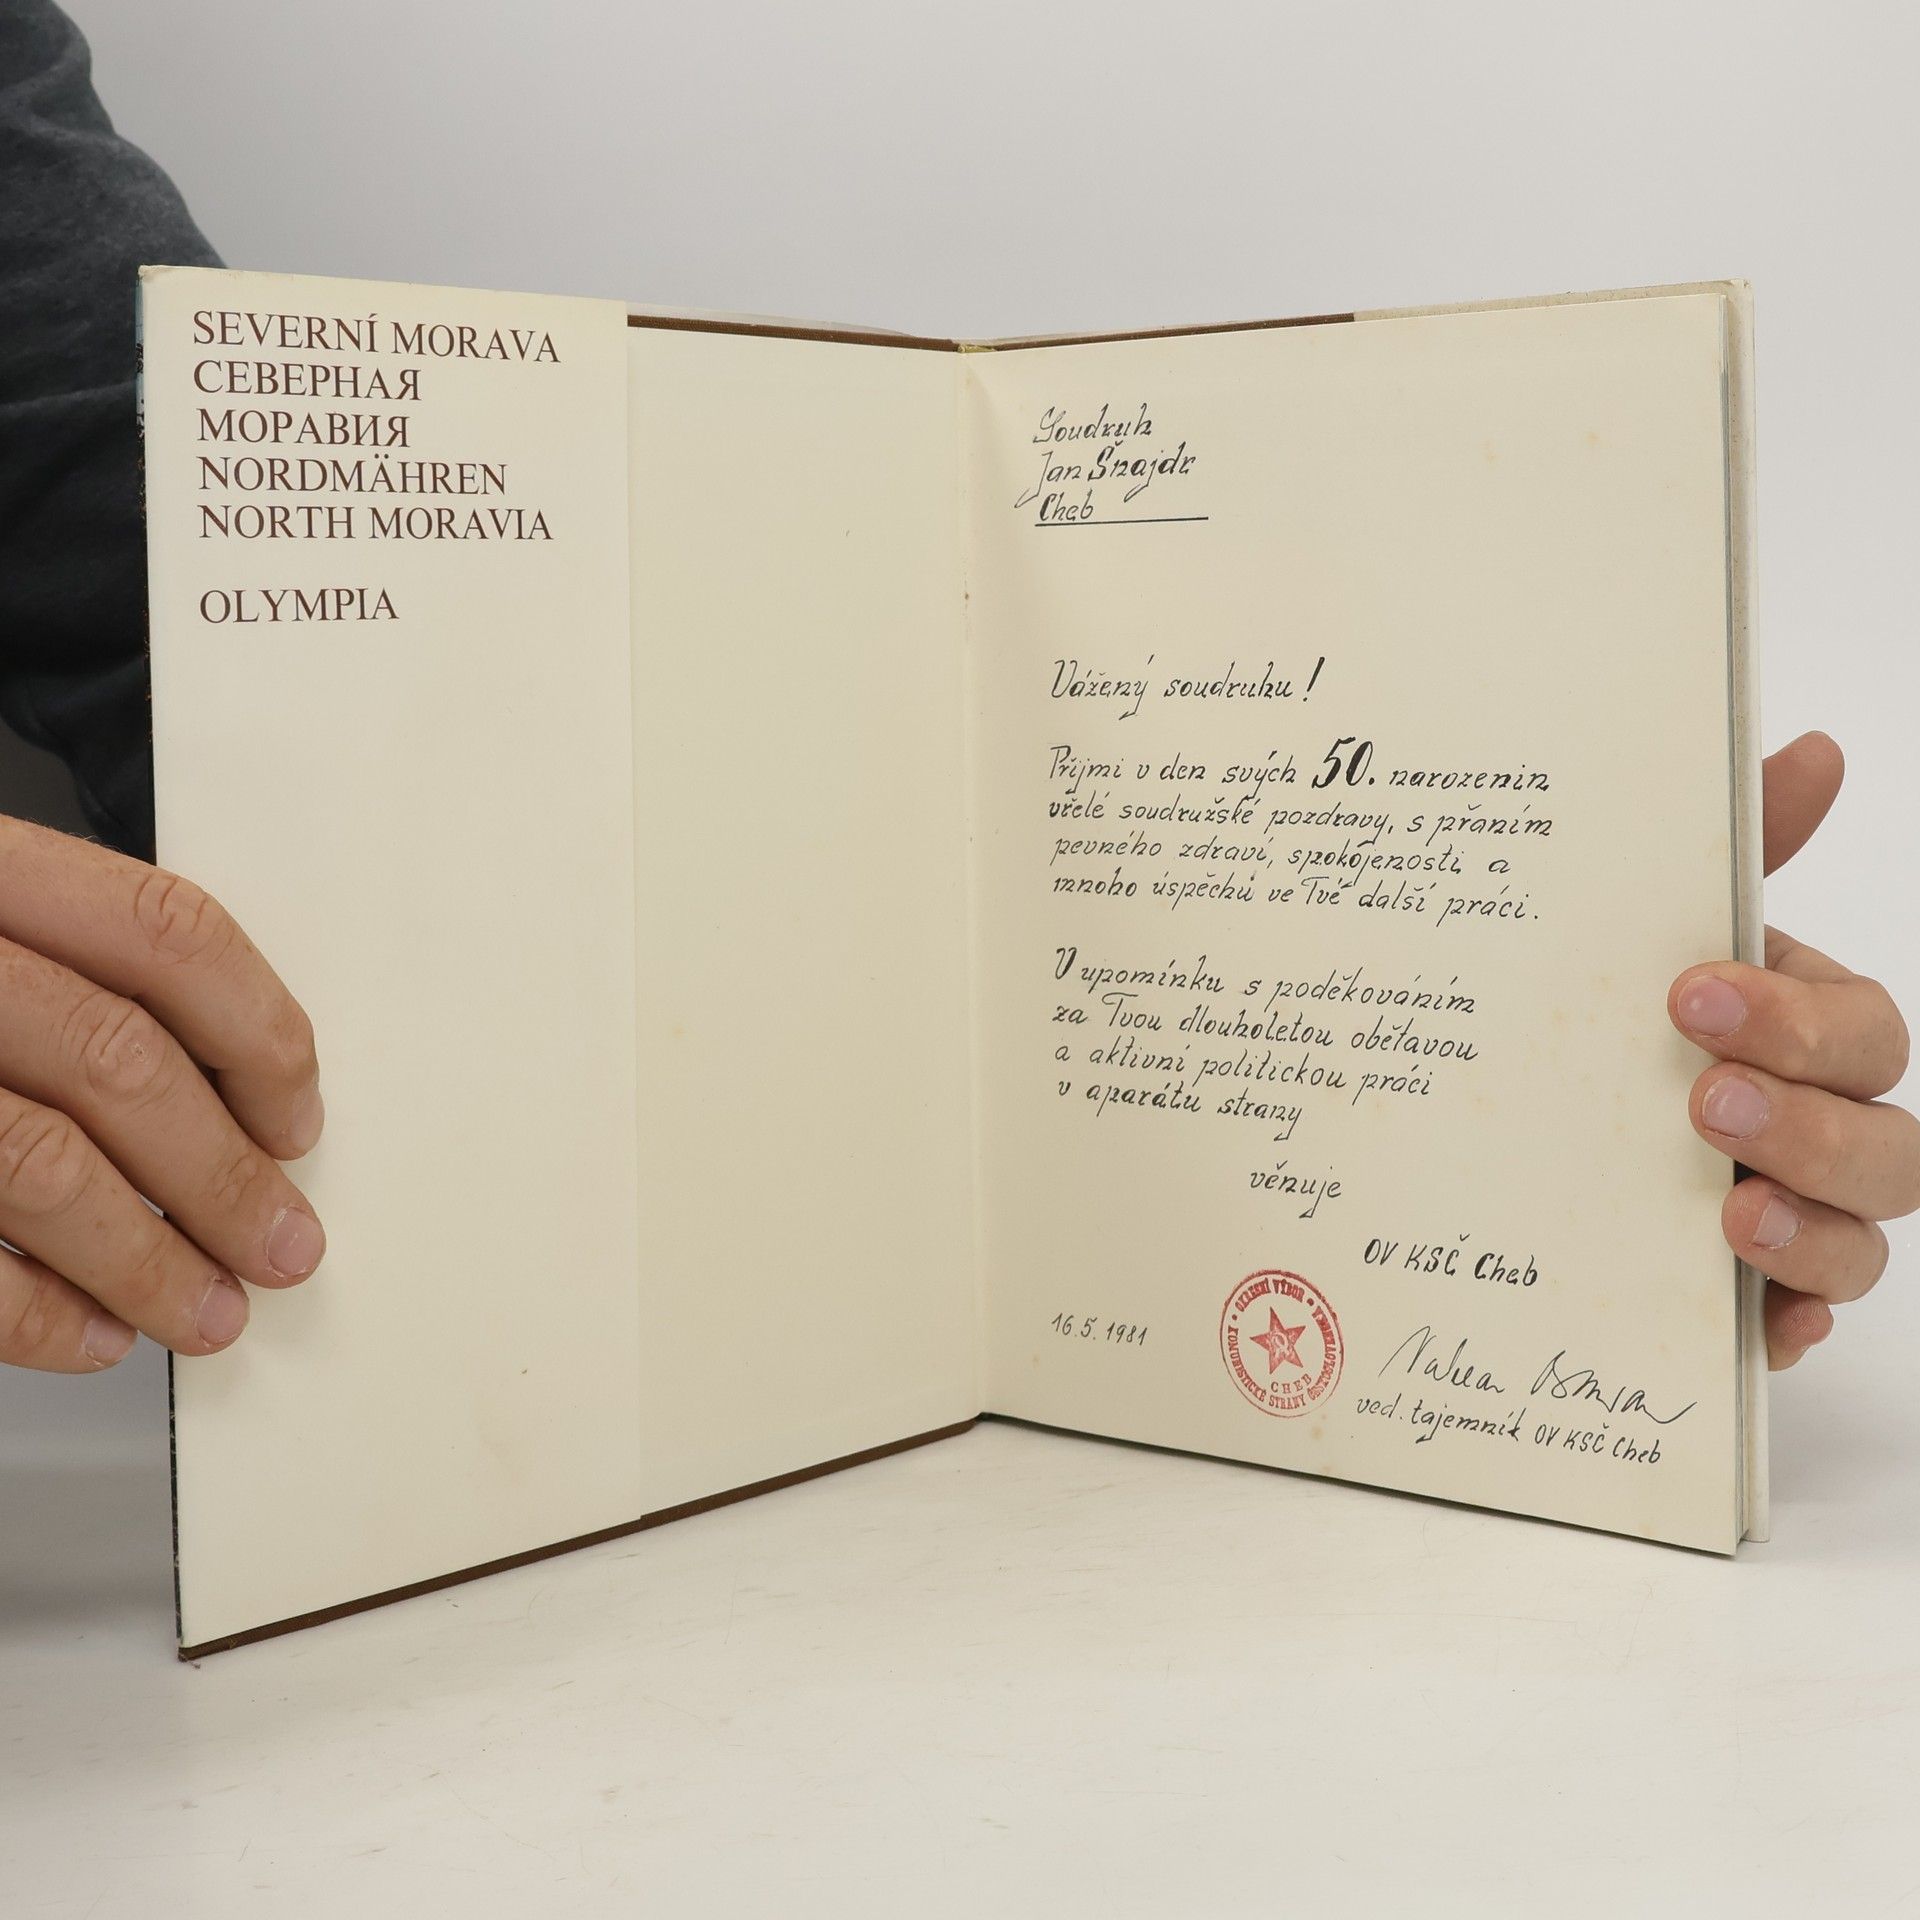 SEVERNÍ MORAVA
СЕВЕРНАЯ
МОРАВИЯ
NORDMÄHREN
NORTH MORAVIA
OLYMPIA
Soudruh
Jan Šnajdr
Cheb
Vážený soudruhu!
Přijmi v den svých 50. narozenin
vřelé soudružské pozdravy, s přáním
pevného zdraví, spokojenosti a
mnoho úspěchů ve Tvé další práci.
V upomínku s poděkováním
za Tvou dlouholetou obětavou
a aktivní politickou práci
v aparátu strany
věnuje
OV KSČ Cheb
16.5.1981
OKRESNÍ VÝBOR
KOMUNISTICKÉ STRANY ČESKOSLOVENSKA
CHEB
ved. tajemník OV KSČ Cheb